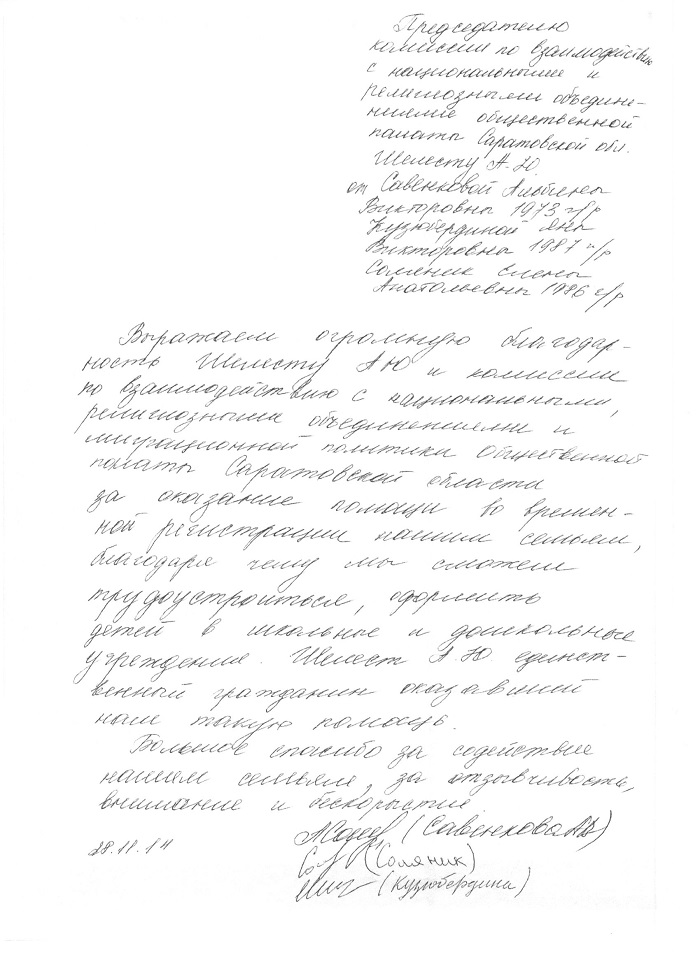 Председателю
комиссии по взаимодействию
с национальными и
религиозными объедине-
ниями общественной
палаты Саратовской обл.
Шелесту А.Ю.
от Савенковой Альбины
Викторовны 1973 г/р
Кузюбердиной Яны
Викторовны 1987 г/р
Соляник Елены
Анатольевны 1986 г/р
Выражаем огромную благодар-
ность Шелесту А Ю и комиссии
по взаимодействию с национальными,
религиозными объединениями и
миграционной политики Общественной
палаты Саратовской области
за оказание помощи во времен-
ной регистрации нашим семьям,
благодаря чему мы сможем
трудоустроиться, оформить
детей в школьные и дошкольные
учреждения. Шелест А.Ю. единст-
венный гражданин оказавший
нам такую помощь.
Большое спасибо за содействие
нашим семьям, за отзывчивость,
внимание и бескорыстие.
28.11.14
(Савенкова АВ)
(Соляник)
(Кузюбердина)